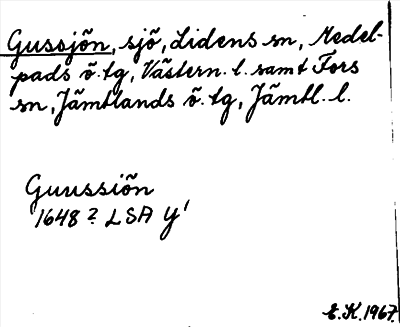 Gussjön, sjö, Lidens sn, Medel-
pads ö. tg, Västern. l. samt Fors
sn, Jämtlands ö. tg, Jämtl. l.
Guussiön
1648 2 LSA Y'
E. K. 1967.